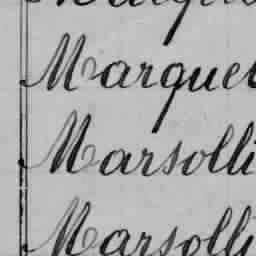 Marquet
Marsolli
Marsolli